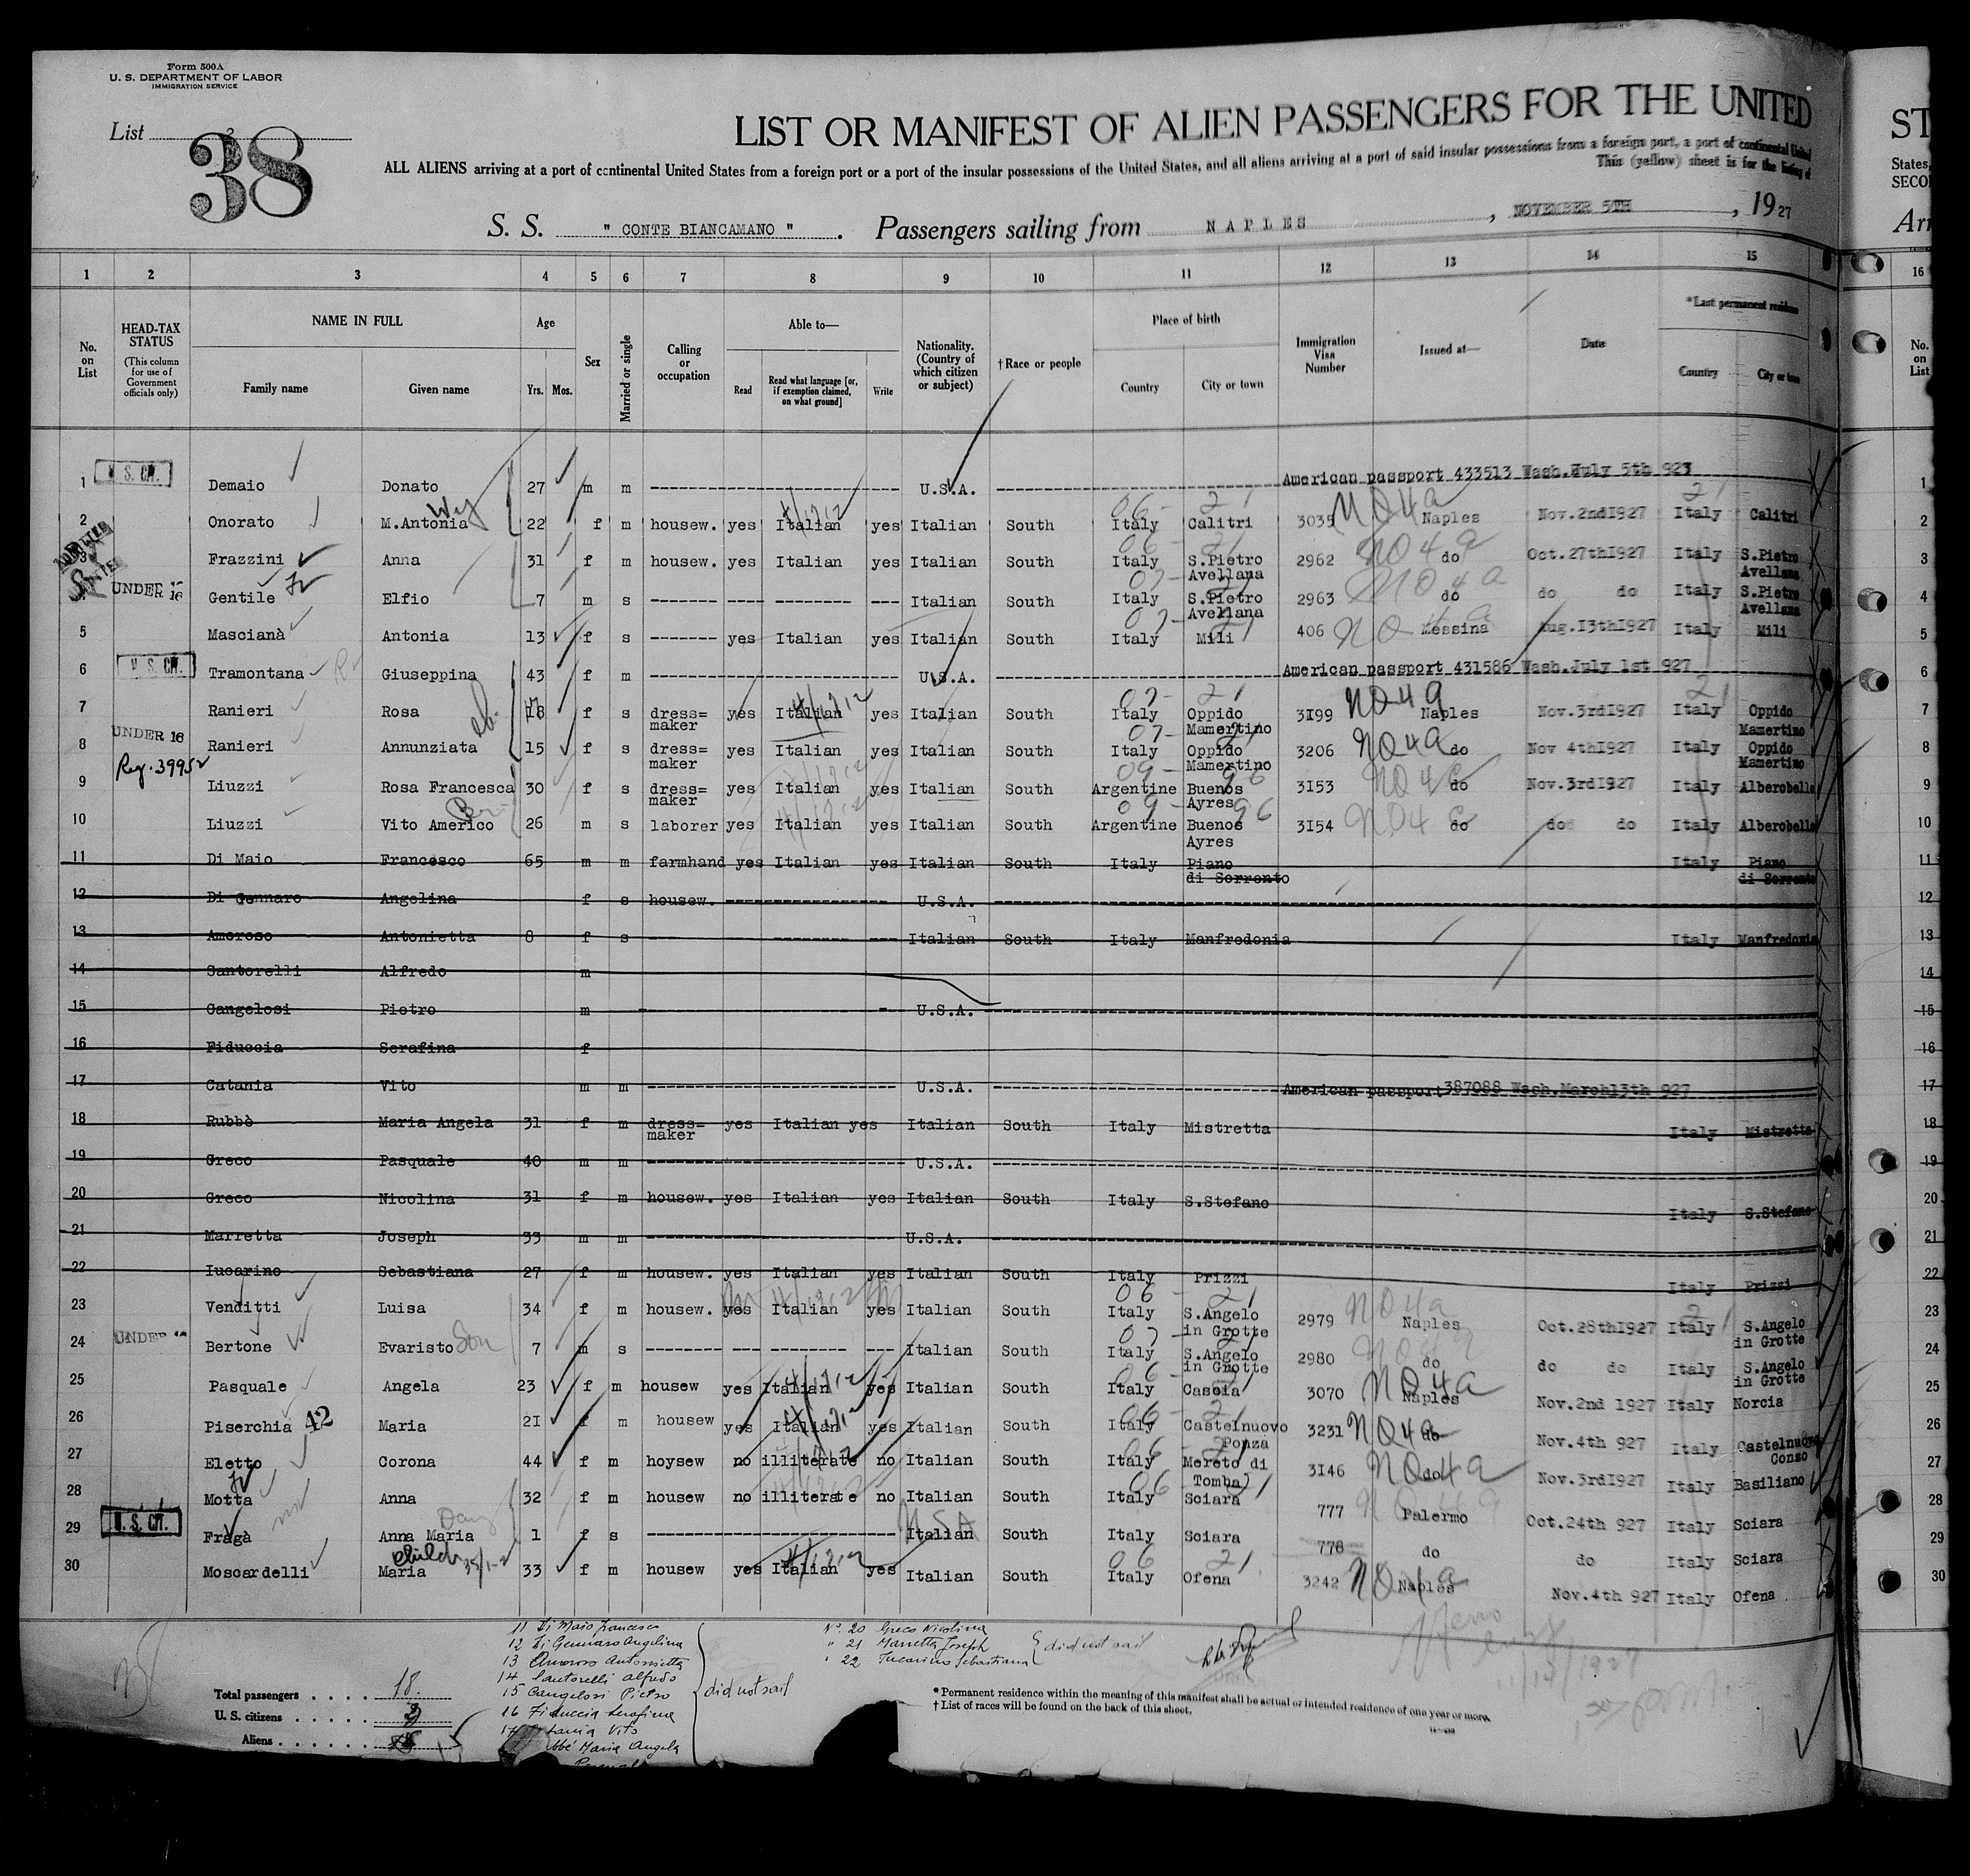 Form 500A
U. S. DEPARTMENT OF LABOR
IMMIGRATION SERVICE
List 2
38
LIST OR MANIFEST OF ALIEN PASSENGERS FOR THE UNITED
ALL ALIENS arriving at a port of continental United States from a foreign port or a port of the insular possessions of the United States, and all aliens arriving at a port of said insular possessions from a foreign port, a port of continental United
This (yellow) sheet is for the listing of
S. S. " CONTE BIANCAMANO " . Passengers sailing from NAPLES , NOVEMBER 5TH , 1927
ST
States,
SECO
Arr
1 2 3 4 5 6 7 8 9 10 11 12 13 14 15 16
No. on List
HEAD-TAX STATUS
(This column for use of Government officials only)
NAME IN FULL
Family name Given name
Age
Yrs. Mos.
Sex
Married or single
Calling or occupation
Able to—
Read
Read what language [or, if exemption claimed, on what ground]
Write
Nationality. (Country of which citizen or subject)
†Race or people
Place of birth
Country City or town
Immigration Visa Number
Issued at—
Date
*Last permanent residence
Country City or town
No. on List
1 U. S. CIT. Demaio Donato 27 m m U.S.A. American passport 433513 Wash.July 5th 923 1
2 Onorato M.Antonia 22 f m housew. yes Italian yes Italian South Italy Calitri 3035 NQ4a Naples Nov.2nd1927 Italy Calitri 2
3 Frazzini Anna 31 f m housew. yes Italian yes Italian South Italy S.Pietro Avellana 2962 NQ4a do Oct.27th1927 Italy S.Pietro Avellana 3
4 UNDER 16 Gentile Elfio 7 m s Italian South Italy S.Pietro Avellana 2963 NQ4a do do do Italy S.Pietro Avellana 4
5 Mascianà Antonia 13 f s yes Italian yes Italian South Italy Mili 406 NQ Messina Aug.13th1927 Italy Mili 5
6 U. S. CIT. Tramontana Giuseppina 43 f m U.S.A. American passport 431586 Wash.July 1st 927 6
7 Ranieri Rosa 18 f s dress=maker yes Italian yes Italian South Italy Oppido Mamertino 3199 NQ4a Naples Nov.3rd1927 Italy Oppido Mamertino 7
8 UNDER 16 Ranieri Annunziata 15 f s dress=maker yes Italian yes Italian South Italy Oppido Mamertino 3206 NQ4a do Nov 4th1927 Italy Oppido Mamertino 8
Reg. 39952
9 Liuzzi Rosa Francesca 30 f s dress=maker yes Italian yes Italian South Argentine Buenos Ayres 3153 do Nov.3rd1927 Italy Alberobello 9
10 Liuzzi Vito Americo 26 m s laborer yes Italian yes Italian South Argentine Buenos Ayres 3154 do do do Italy Alberobello 10
11 Di Maio Francesco 65 m m farmhand yes Italian yes Italian South Italy Piano di Sorrento Italy Piano di Sorrento 11
12 Di Gennaro Angelina f s housew. U.S.A. 12
13 Amoroso Antonietta 8 f s Italian South Italy Manfredonia Italy Manfredonia 13
14 Santorelli Alfredo m 14
15 Cangelosi Pietro m U.S.A. 15
16 Fiduccia Serafina f 16
17 Catania Vito m m U.S.A. American passport 387088 Wash.March13th 927 17
18 Rubbè Maria Angela 31 f m dress=maker yes Italian yes Italian South Italy Mistretta Italy Mistretta 18
19 Greco Pasquale 40 m m U.S.A. 19
20 Greco Nicolina 31 f m housew. yes Italian yes Italian South Italy S.Stefano Italy S.Stefano 20
21 Marretta Joseph 33 m m U.S.A. 21
22 Iucarino Sebastiana 27 f m housew. yes Italian yes Italian South Italy Prizzi Italy Prizzi 22
23 Venditti Luisa 34 f m housew. yes Italian yes Italian South Italy S.Angelo in Grotte 2979 NQ4a Naples Oct.28th1927 Italy S.Angelo in Grotte 23
24 UNDER 16 Bertone Evaristo Son 7 m s Italian South Italy S.Angelo in Grotte 2980 do do do Italy S.Angelo in Grotte 24
25 Pasquale Angela 23 f m housew yes Italian yes Italian South Italy Cascia 3070 NQ4a Naples Nov.2nd 1927 Italy Norcia 25
26 Piserchia 42 Maria 21 f m housew yes Italian yes Italian South Italy Castelnuovo Ponza 3231 NQ4a do Nov.4th 927 Italy Castelnuovo Conzo 26
27 Eletto Corona 44 f m hoysew no illiterate no Italian South Italy Mereto di Tomba 3146 NQ4a do Nov.3rd1927 Italy Basiliano 27
28 Motta Anna 32 f m housew no illiterate no Italian South Italy Sciara 777 Palermo Oct.24th 927 Italy Sciara 28
29 U. S. CIT. Fragà Anna Maria 1 f s Italian USA South Italy Sciara 778 do do Italy Sciara 29
30 Moscardelli Maria 33 f m housew yes Italian yes Italian South Italy Ofena 3242 NQ4a Naples Nov.4th 927 Italy Ofena 30
11 Di Maio Francesco
12 Di Gennaro Angelina
13 Amoroso Antonietta
14 Santorelli Alfredo
15 Cangelosi Pietro
16 Fiduccia Serafina
17 Catania Vito
Maria Angela
did not sail
N°. 20 Greco Nicolina
" 21 Marretta Joseph
" 22 Iucarino Sebastiana
did not sail
Total passengers . . . . 18
U. S. citizens . . . . . 3
Aliens . . . . . .
* Permanent residence within the meaning of this manifest shall be actual or intended residence of one year or more.
† List of races will be found on the back of this sheet.